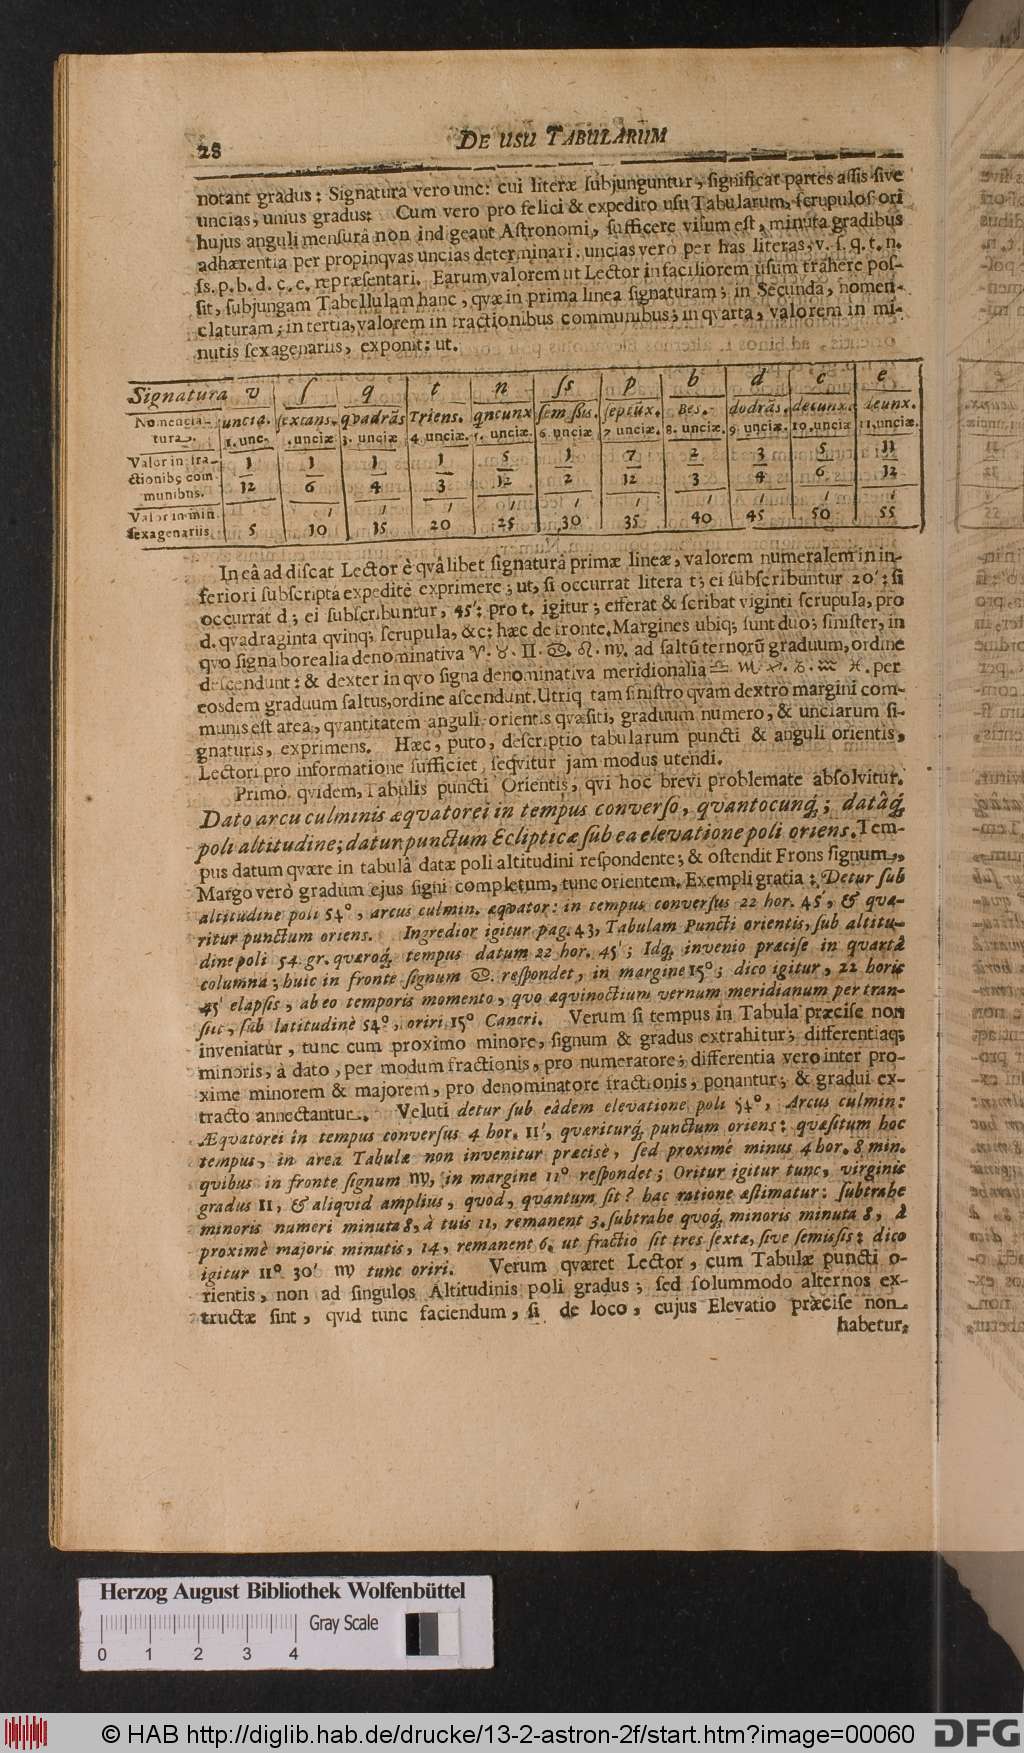 28
DE USU TABULARUM
notant gradus: Signatura vero unc: cui literæ ſubjunguntur, ſignificat partes aſſis ſive
uncias, unius gradus: Cum vero pro felici & expedito uſu Tabularum, ſcrupuloſ ori
hujus anguli menſurâ non indigeant Aſtronomi, ſufficere viſum eſt, minuta gradibus
adhærentia per propinqvas uncias determinari: uncias vero per has literas, v. ſ. q. t. n.
ſs. p. b. d. c. e. repræſentari. Earum valorem ut Lector in faciliorem uſum trahere poſ-
ſit, ſubjungam Tabellulam hanc, qvæ in prima linea ſignaturam; in Secunda, nomen-
claturam; in tertia, valorem in fractionibus communibus; in qvarta, valorem in mi-
nutis ſexagenariis, exponit: ut.
Signatura v ſ q t n ſs p b d c e
Nomencla- uncia. ſextans. qvadrãs Triens. qncunx ſem ſſis. ſeptũx. Bes. dodrãs. decunx. deunx.
tura. 1. unc. . unciæ 3. unciæ 4. unciæ. 5. unciæ. 6. unciæ 7 unciæ. 8. unciæ. 9. unciæ. 10. unciæ 11. unciæ.
Valor in fra- 1 1 1 1 5 1 7 2 3 5 11
ctionibꝰ com 12 6 4 3 12 2 12 3 4 6 12
munibus.
Valor in min. ′ ′ ′ ′ ′ ′ ′ ′ ′ ′
ſexagenariis 5 10 15 20 25 30 35 40 45 50 55
In eâ ad diſcat Lector è qvâlibet ſignaturâ primæ lineæ, valorem numeralem in in-
feriori ſubſcripta expeditè exprimere; ut, ſi occurrat litera t; ei ſubſcribuntur 20′: ſi
occurrat d; ei ſubſcribuntur, 45′: pro t. igitur; efferat & ſcribat viginti ſcrupula, pro
d. qvadraginta qvinq; ſcrupula, &c: hæc de fronte. Margines ubiq; ſunt duo; ſiniſter, in
qvo ſigna borealia denominativa ♈. ♉. ♊. ♋. ♌. ♍. ad ſaltũ ternorũ graduum, ordine
deſcendunt: & dexter in qvo ſigna denominativa meridionalia ♎. ♏. ♐. ♑. ♒. ♓. per
eosdem graduum ſaltus, ordine aſcendunt. Utriq tam ſiniſtro qvam dextro margini com-
munis eſt area, qvantitatem anguli orientis qvæſiti, graduum numero, & unciarum ſi-
gnaturis, exprimens. Hæc, puto, deſcriptio tabularum puncti & anguli orientis,
Lectori pro informatione ſufficiet, ſeqvitur jam modus utendi.
Primò qvidem, Tabulis puncti Orientis, qvi hoc brevi problemate abſolvitur.
Dato arcu culminis æqvatorei in tempus converſo, qvantocunq́; datâq́
poli altitudine; datur punctum Eclipticæ ſub ea elevatione poli oriens. Tem-
pus datum qvære in tabulâ datæ poli altitudini reſpondente; & oſtendit Frons ſignum,
Margo verò gradum ejus ſigni completum, tunc orientem. Exempli gratia: Detur ſub
altitudine poli 54°, arcus culmin. æqvator: in tempus converſus 22 hor. 45′, & qvæ-
ritur punctum oriens. Ingredior igitur pag. 43, Tabulam Puncti orientis, ſub altitu-
dine poli 54. gr. qværoq́, tempus datum 22 hor. 45′; Idq́, invenio præciſe in qvartâ
columnâ; huic in fronte ſignum ♋. reſpondet, in margine 15°; dico igitur, 22 horis
45′ elapſis, ab eo temporis momento, qvo æqvinoctium vernum meridianum per tran-
ſiit, ſub latitudinè 54°, oriri 15° Cancri. Verum ſi tempus in Tabula præciſe non
inveniatur, tunc cum proximo minore, ſignum & gradus extrahitur; differentiaq;
minoris, à dato, per modum fractionis, pro numeratore; differentia vero inter pro-
xime minorem & majorem, pro denominatore fractionis, ponantur; & gradui ex-
tracto annectantur. Veluti detur ſub eâdem elevatione poli 54°, Arcus culmin:
Æqvatorei in tempus converſus 4 hor. 11′, qværiturq́, punctum oriens: qvæſitum hoc
tempus, in area Tabulæ non invenitur præcisè, ſed proximè minus 4 hor. 8 min.
qvibus in fronte ſignum ♍, in margine 11° reſpondet; Oritur igitur tunc, virginis
gradus 11, & aliqvid amplius, qvod, qvantum ſit? hac ratione æſtimatur: ſubtrahe
minoris numeri minuta 8, à tuis 11, remanent 3. ſubtrahe qvoq́, minoris minuta 8, à
proximè majoris minutis, 14, remanent 6. ut fractio ſit tres ſextæ, ſive ſemiſſis: dico
igitur 11° 30′ ♍ tunc oriri. Verum qværet Lector, cum Tabulæ puncti o-
rientis, non ad ſingulos Altitudinis poli gradus; ſed ſolummodo alternos ex-
tructæ ſint, qvid tunc faciendum, ſi de loco, cujus Elevatio præciſe non
habetur,
Herzog August Bibliothek Wolfenbüttel
Gray Scale
0 1 2 3 4
© HAB http://diglib.hab.de/drucke/13-2-astron-2f/start.htm?image=00060
DFG